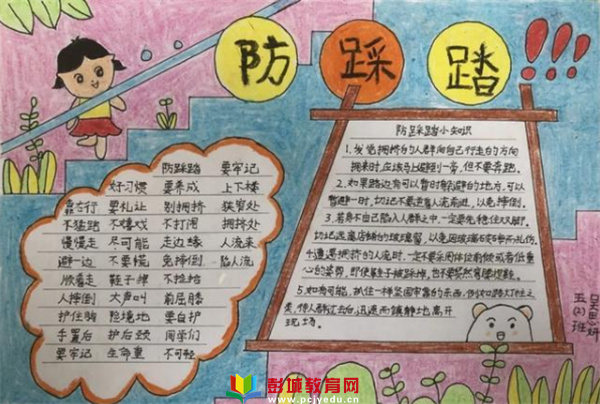 防踩踏!!!
防踩踏 要牢记
好习惯 要养成 上下楼
靠右行 要礼让 别拥挤 狭窄处
不猛跑 不嬉戏 不打闹 拥挤处
慢慢走 尽可能 走边缘 人流来
避一边 不要慌 免摔倒 陷人流
顺着走 鞋子掉 不捡拾
人摔倒 大声叫 前屈膝
护住胸 险境地 要自护
手置后 护后颈 同学们
要牢记 生命重 不可轻
防踩踏小知识
1、发觉拥挤的人群向自己行走的方向
拥来时,应该马上避到一旁,但不要奔跑。
2、如果路边有可以暂时躲避的地方,可以
暂避一时,切记不要逆着人流前进,以免摔倒。
3、若身不由己陷入人群之中,一定要先稳住双脚。
切记远离店铺的玻璃窗,以免因玻璃破碎而扎伤。
4、遭遇拥挤的人流时,一定不要采用体位前倾或者低重
心的姿势,即使鞋子被踩掉,也不要
5、如有可能,抓住一样坚固牢靠的东西,例如路灯柱之
类,待人群过去后,迅速而镇静地离开
现场。
五(2)班
彭城教育网
www.pcjyedu.cn